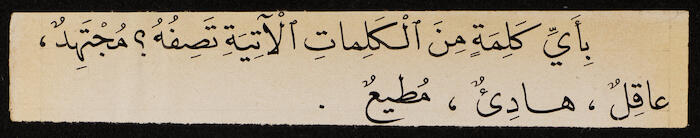 بِأَيِّ كَلِمَةٍ مِنَ ٱلْكَلِماتِ ٱلْآتِيَةِ تَصِفُهُ ؟ مُجْتَهِدٌ ،
عاقِلٌ ، هـادِئٌ ، مُطيعٌ .